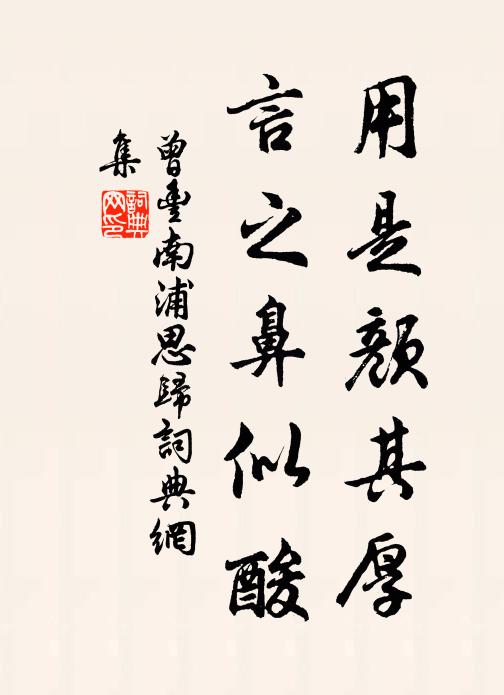 用是顏其厚
言之鼻似酸
曾豐南浦思歸詞典網
集
詞典
网印